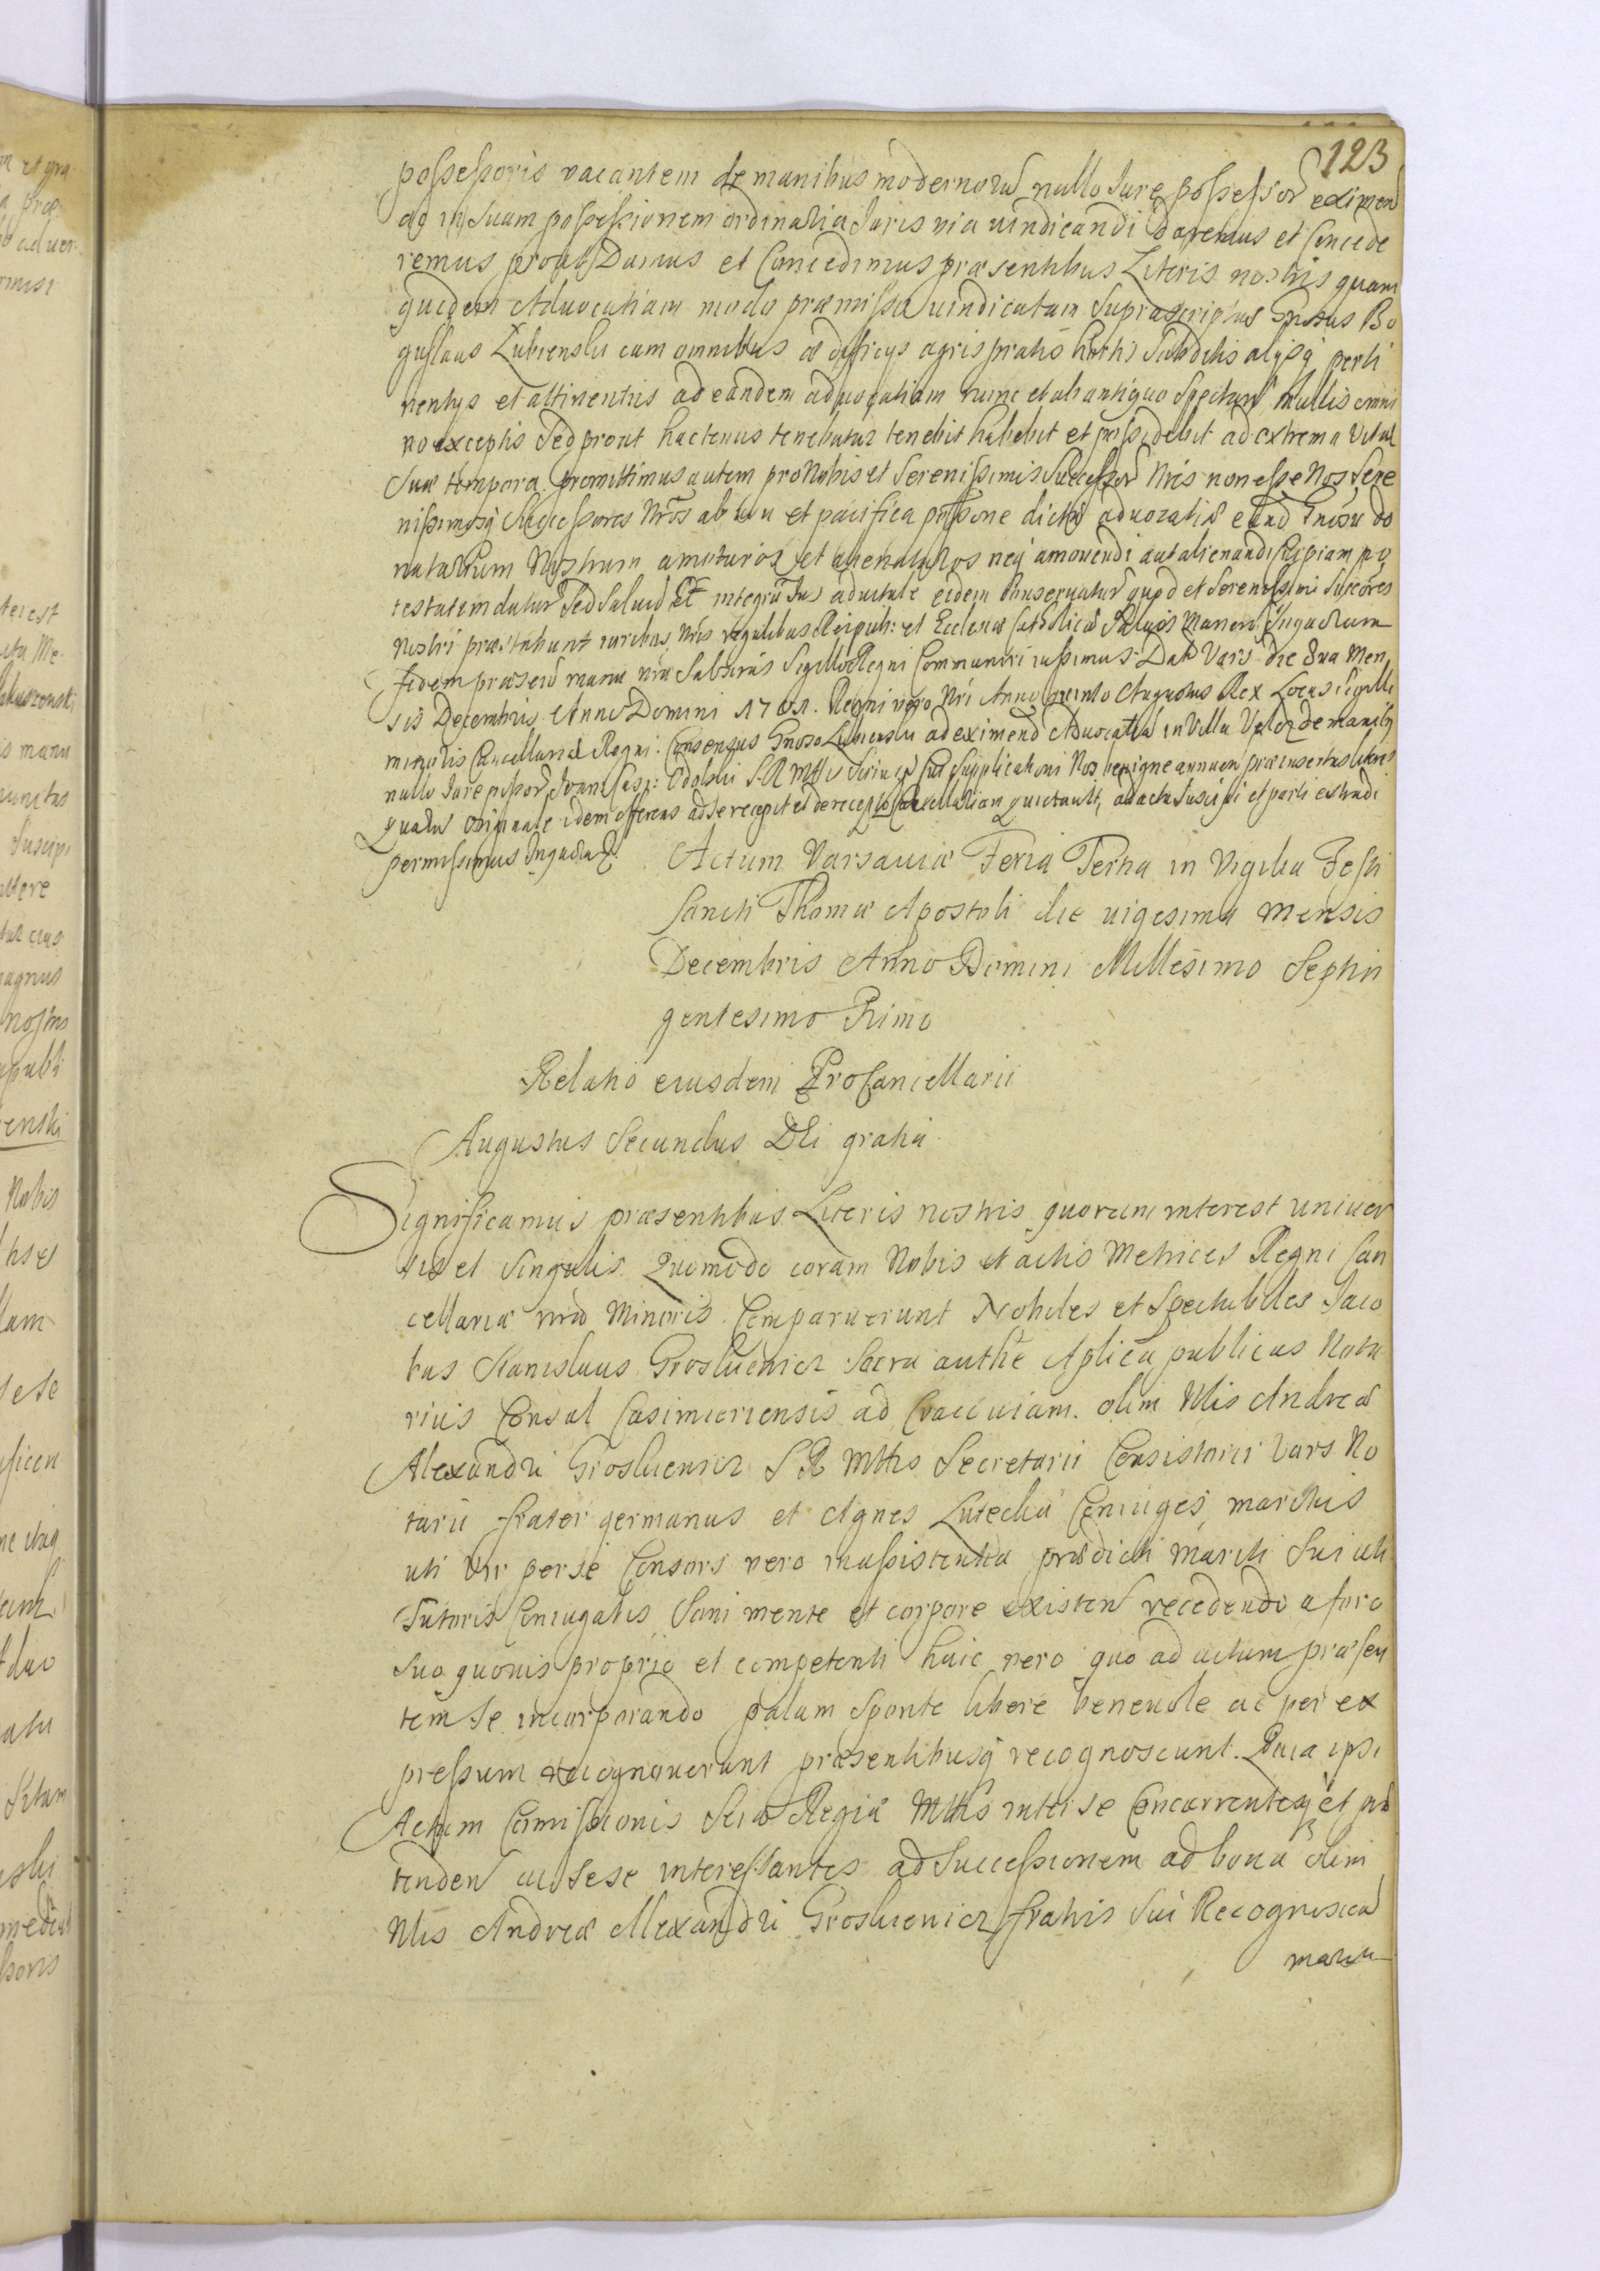 123
possessoris vacantem de manibus modernorũ nullo Jure possessor eximen
ac in Suam possessionem ordinaria Juris via uindicandi daremus et Concede
remus prout Damus et Concedimus præsentibus Literis nostris quam
quidem Aduocatiam modo præmisso uindicatam Suprascriptus Gnosus Bo
guslaus Zubienski cum omnibus ædificijs agris pratis hortis Subditis alijsq perti
nentijs et attinentiis ad eandem aduocatiam nunc et ab antiquo Spectan nullis omni
no exceptis Sed prout hactenus tenebatur tenebit habebit et possidebit ad extrema Vitæ
Suæ tempora. promittimus autem pro Nobis et Serenissimis Successor Nris non esse Nos Sere
nissimosq Successores Nros ab usu et pacifica possone dictæ aduocatiæ eund Gnosu do
natarium Nostrum amoturos et alienaturos neq amouendi aut alienandi cupiam po
testatem datur Sed Saluũ et integrũ Jus aduitale eidem Conseruatur quod et Serenissimi Succores
Nostri præstabunt iuribus Nris regalibus Reipub: et Ecclesiæ Catholicæ Saluis Manen In quorum
fidem præsen manu nra Subscrus Sigillo Regni Communiri iussimus Dat Vars die 8va Men
sis Decembris Anno Domini 1701. Regni vero Nri Anno quinto Augustus Rex Locus Sigilli
minoris Cancellariæ Regni: Consensus Gnoso Zubienski ad eximend Aduocatia in Villa de manibs
nullo Jure possor Joan Casp: S. R Mttis Cui Supplicationi Nos benigne annuen præinsertas literas
quarũ originale idem offerens ad se recepit et de recepto Cancellariam quietauit, ad acta Suscipi et parti extradi
permissimus In quorũ
Actum Varsauiæ Feria Tertia in Vigilia Festi
Sancti Thomæ Apostoli die uigesima Mensis
Decembris Anno Domini Millesimo Septin
gentesimo Primo
Relatio eiusdem ProCancellarii
Augustus Secundus DEi gratia
Significamus præsentibus Literis nostris quorum interest univer
sis et Singulis. Quomodo coram Nobis et actis Metrices Regni Can
cellariæ nræ Minoris Comparuerunt Nobiles et Spectabiles Jaco
bus Stanislaus Groslueniez Sacra authe Aplica publicus Nota
rius Consul Casimieriensis ad Cracouiam. olim Nlis Andreæ
Alexandri Groslueniez S R Mttis Secretarii Consistorii Vars No
tarii frater germanus et Agnes Lutecka Coniuges, maritus
uti Vir per se Consors vero in assistentia prædicti mariti Sui uti
Tutoris Coniugalis Sani mente et corpore existen recedendo a foro
Suo quouis proprio et competenti huic vero quo ad actum præsen
tem Se incorporando palam Sponte libere beneuole ac per ex
pressum recognouerunt præsentibusq recognoscunt. Quia ipsi
Actum Comissionis Scræ Regiæ Mttis inter se Concurrentesq et præ
tenden ac Sese interessantes ad Successionem ad bona olim
Nlis Andreæ Alexandri Groslueniez fratris Sui Recognoscen